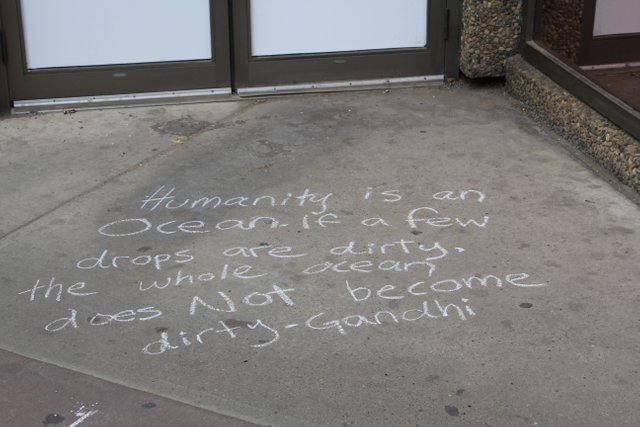 Humanity is an
Ocean. if a few
drops are dirty.
the whole ocean
does Not become
dirty-Gandhi